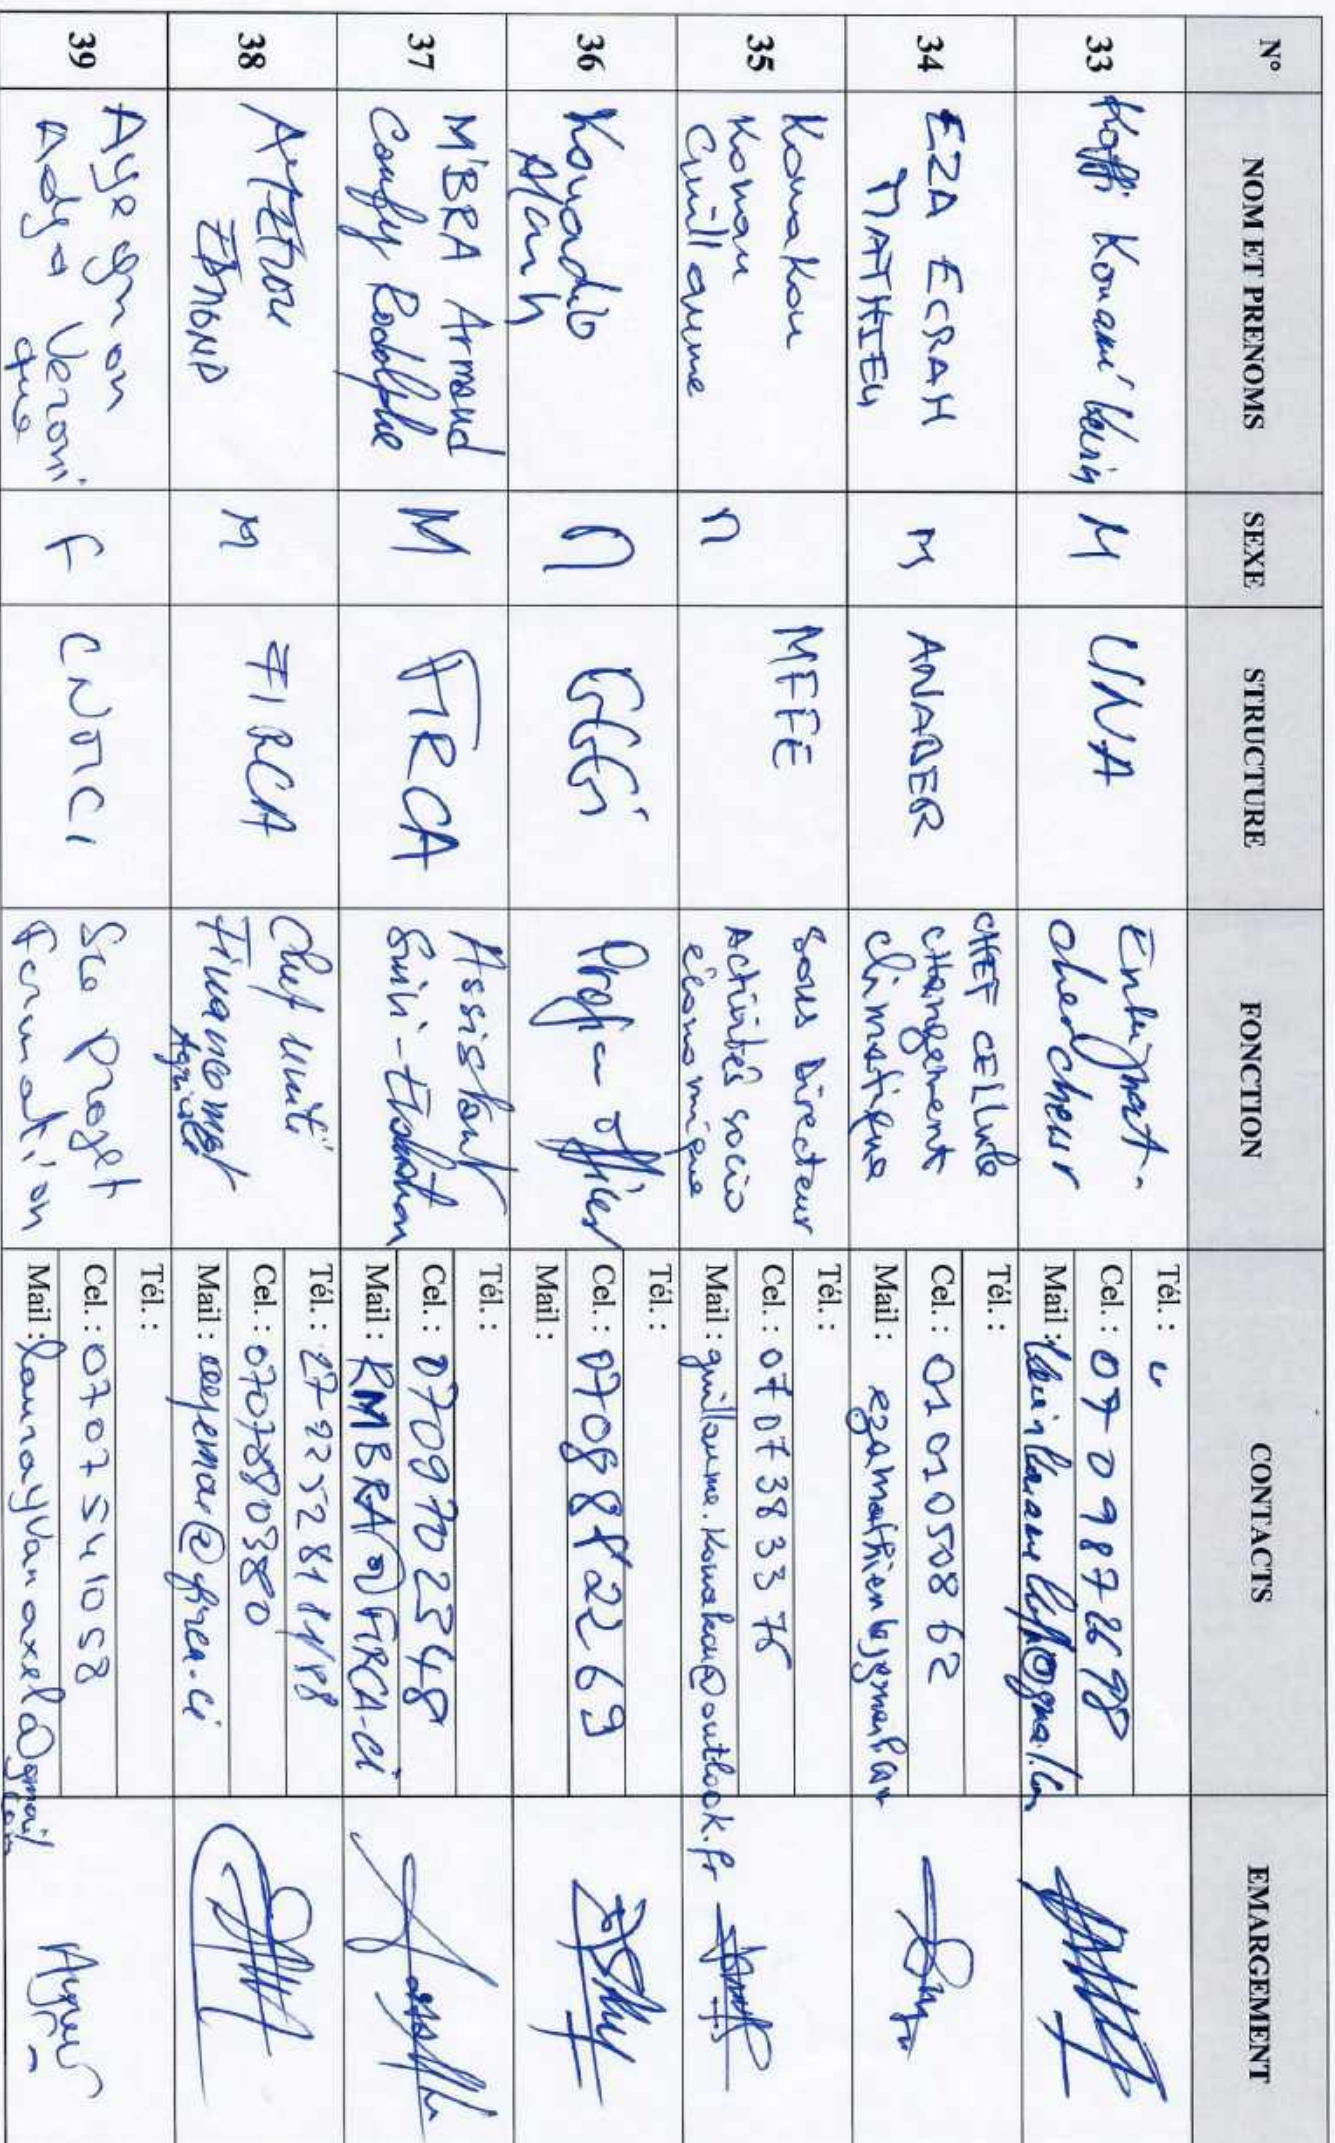 N° NOM ET PRENOMS SEXE STRUCTURE FONCTION CONTACTS EMARGEMENT
33
Koffi Kouamé Kevin
M
UNA
chercheur
Tél. :
Cel. : 07 09 87 26 98
Mail :
34
EZA ECRAH
MATHIEU
M
ANADER
CHEF CELLULE
CHangement
climatique
Tél. :
Cel. : 01 01 05 08 62
Mail :
35
Kouakou
Konan
Guillaume
M
MFFE
Sous Directeur
Activités socio
économique
Tél. :
Cel. : 07 07 38 33 75
Mail : guillaume.kouakou@outlook.fr
36
Kouadio
M
GGGI
officer
Tél. :
Cel. : 07 08 8 22 69
Mail :
37
M'BRA Armand
Rodolphe
M
FIRCA
Assistant
Suivi-Evaluation
Tél. :
Cel. : 07 09 70 23 48
Mail : RMBRA@FIRCA.ci
38
EDMOND
M
FIRCA
Chef unité
Agricole
Tél. : 27 22 52 81 81
Cel. : 0707880380
Mail :
39
Adja Veroni
que
F
CNOTCI
Projet
Formation
Tél. :
Cel. : 07 07 54 10 58
Mail : launayvanaxel@gmail
com